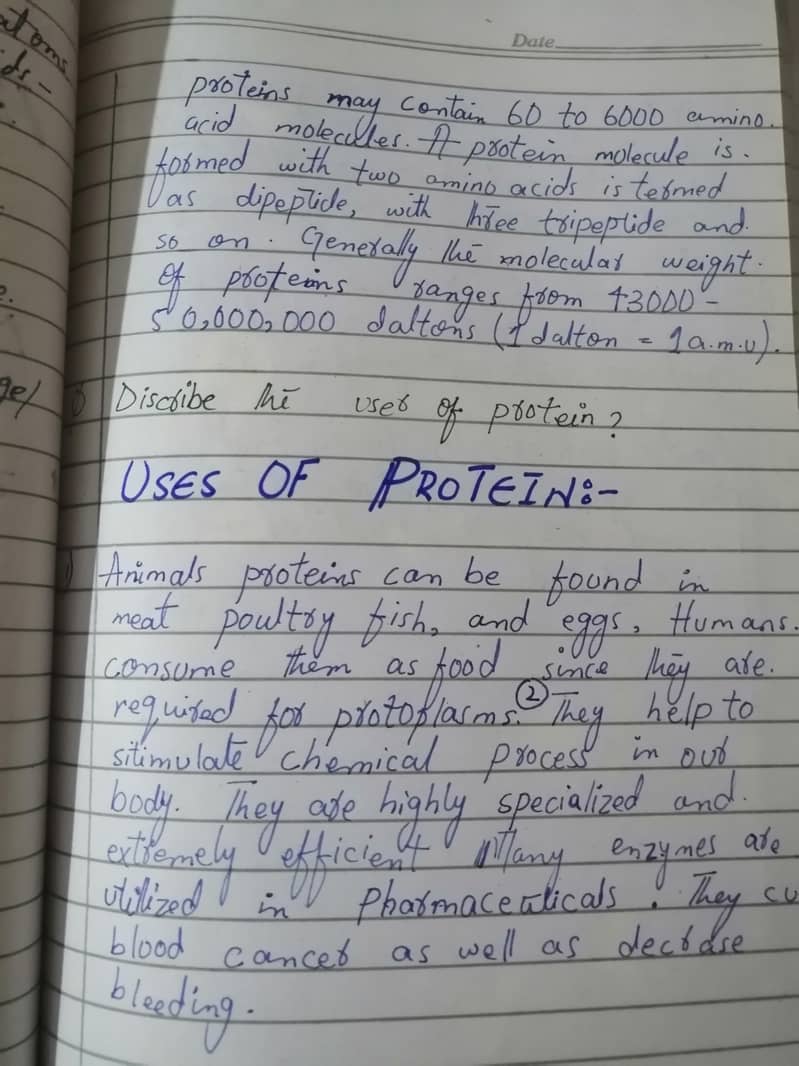 Date
proteins may contain 60 to 6000 amino.
acid molecules. A protein molecule is.
formed with two amino acids is termed
as dipeptide, with three tripeptide and.
so on. Generally the molecular weight.
of proteins ranges from 43000 -
50,000,000 daltons (1 dalton = 1a.m.u).
Discribe the uses of protein?
USES OF PROTEIN:-
Animals proteins can be found in
meat poultry fish, and eggs, Humans.
consume them as food since they are.
required for protoplasms. ② They help to
sitimulate chemical process in our
body. They are highly specialized and.
extremely efficient Many enzymes are
utilized in Pharmaceuticals. They cu
blood cancer as well as decrase
bleeding.